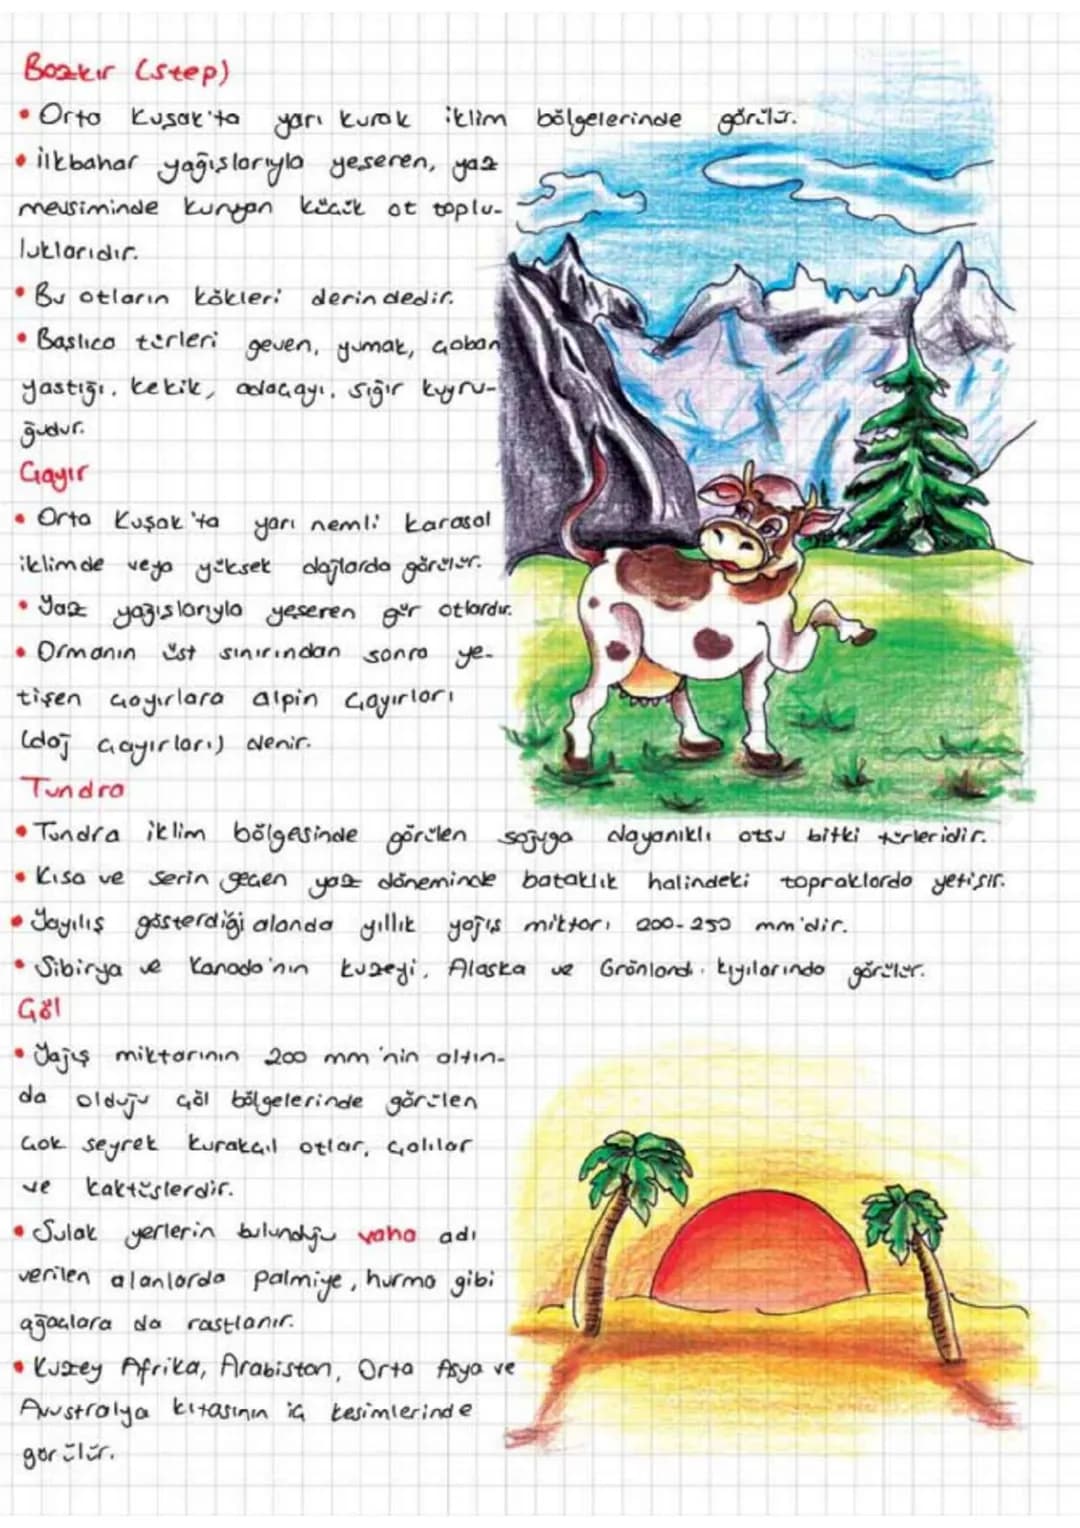 Bozkır (step)
• Orta Kuşak'ta yarı kurak iklim bölgelerinde görülür.
• İlkbahar yağışlarıyla yeşeren, yaz
mevsiminde kuruyan küçük ot toplu-
luklarıdır.
• Bu otların kökleri derindedir.
• Başlıca türleri geven, yumak, çoban
yastığı, kekik, adaçayı, sığır kuyru-
ğudur.
Çayır
• Orta Kuşak'ta yarı nemli karasal
iklimde veya yüksek dağlarda görülür.
• Yaz yağışlarıyla yeşeren gür otlardır.
• Ormanın üst sınırından sonra ye-
tişen çayırlara alpin çayırları
(dağ çayırları) denir.
Tundra
• Tundra iklim bölgesinde görülen soğuğa dayanıklı otsu bitki türleridir.
• Kısa ve serin geçen yaz döneminde bataklık halindeki topraklarda yetişir.
• Yayılış gösterdiği alanda yıllık yağış miktarı 200-250 mm'dir.
• Sibirya ve Kanada'nın kuzeyi, Alaska ve Grönland kıyılarında görülür.
Çöl
• Yağış miktarının 200 mm'nin altın-
da olduğu çöl bölgelerinde görülen
çok seyrek kurakçıl otlar, çalılar
ve kaktüslerdir.
• Sulak yerlerin bulunduğu vaha adı
verilen alanlarda palmiye, hurma gibi
ağaçlara da rastlanır.
• Kuzey Afrika, Arabistan, Orta Asya ve
Avustralya kıtasının iç kesimlerinde
görülür.